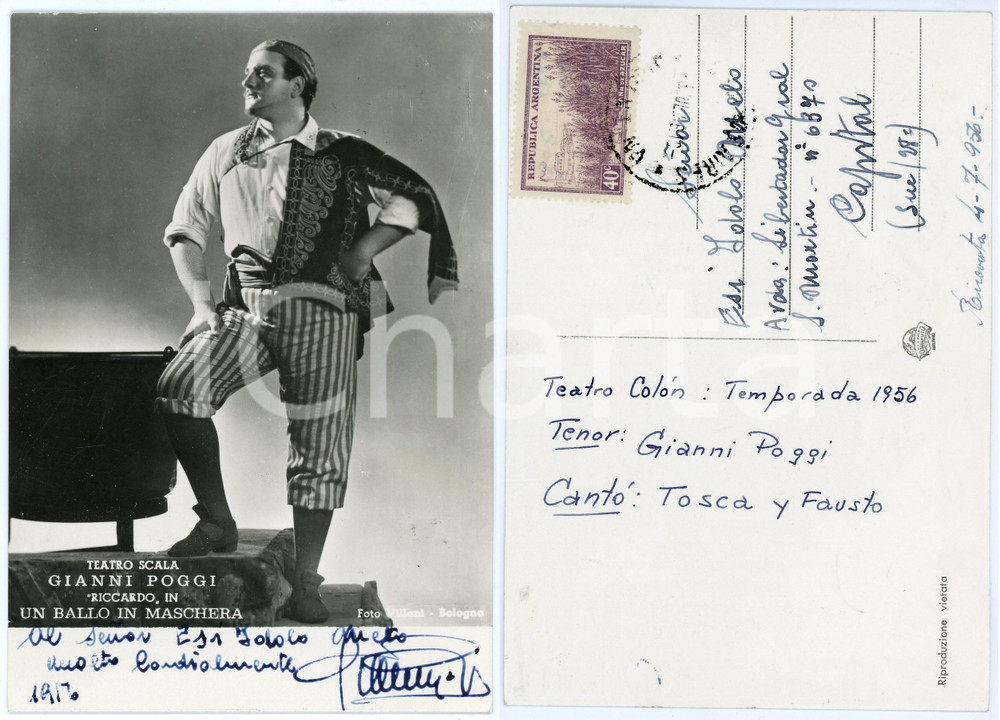 TEATRO SCALA
GIANNI POGGI
"RICCARDO" IN
UN BALLO IN MASCHERA
Foto Villani - Bologna
Al Señor
molto Cordialmente
1956
Charta
REPUBLICA ARGENTINA
40c
Señor
Avda. Libertador Gral
S. Martin. - nº 6370
Capital
(Suc 28)
4-7-956-
Teatro Colón : Temporada 1956
Tenor: Gianni Poggi
Cantó: Tosca y Fausto
Riproduzione vietata